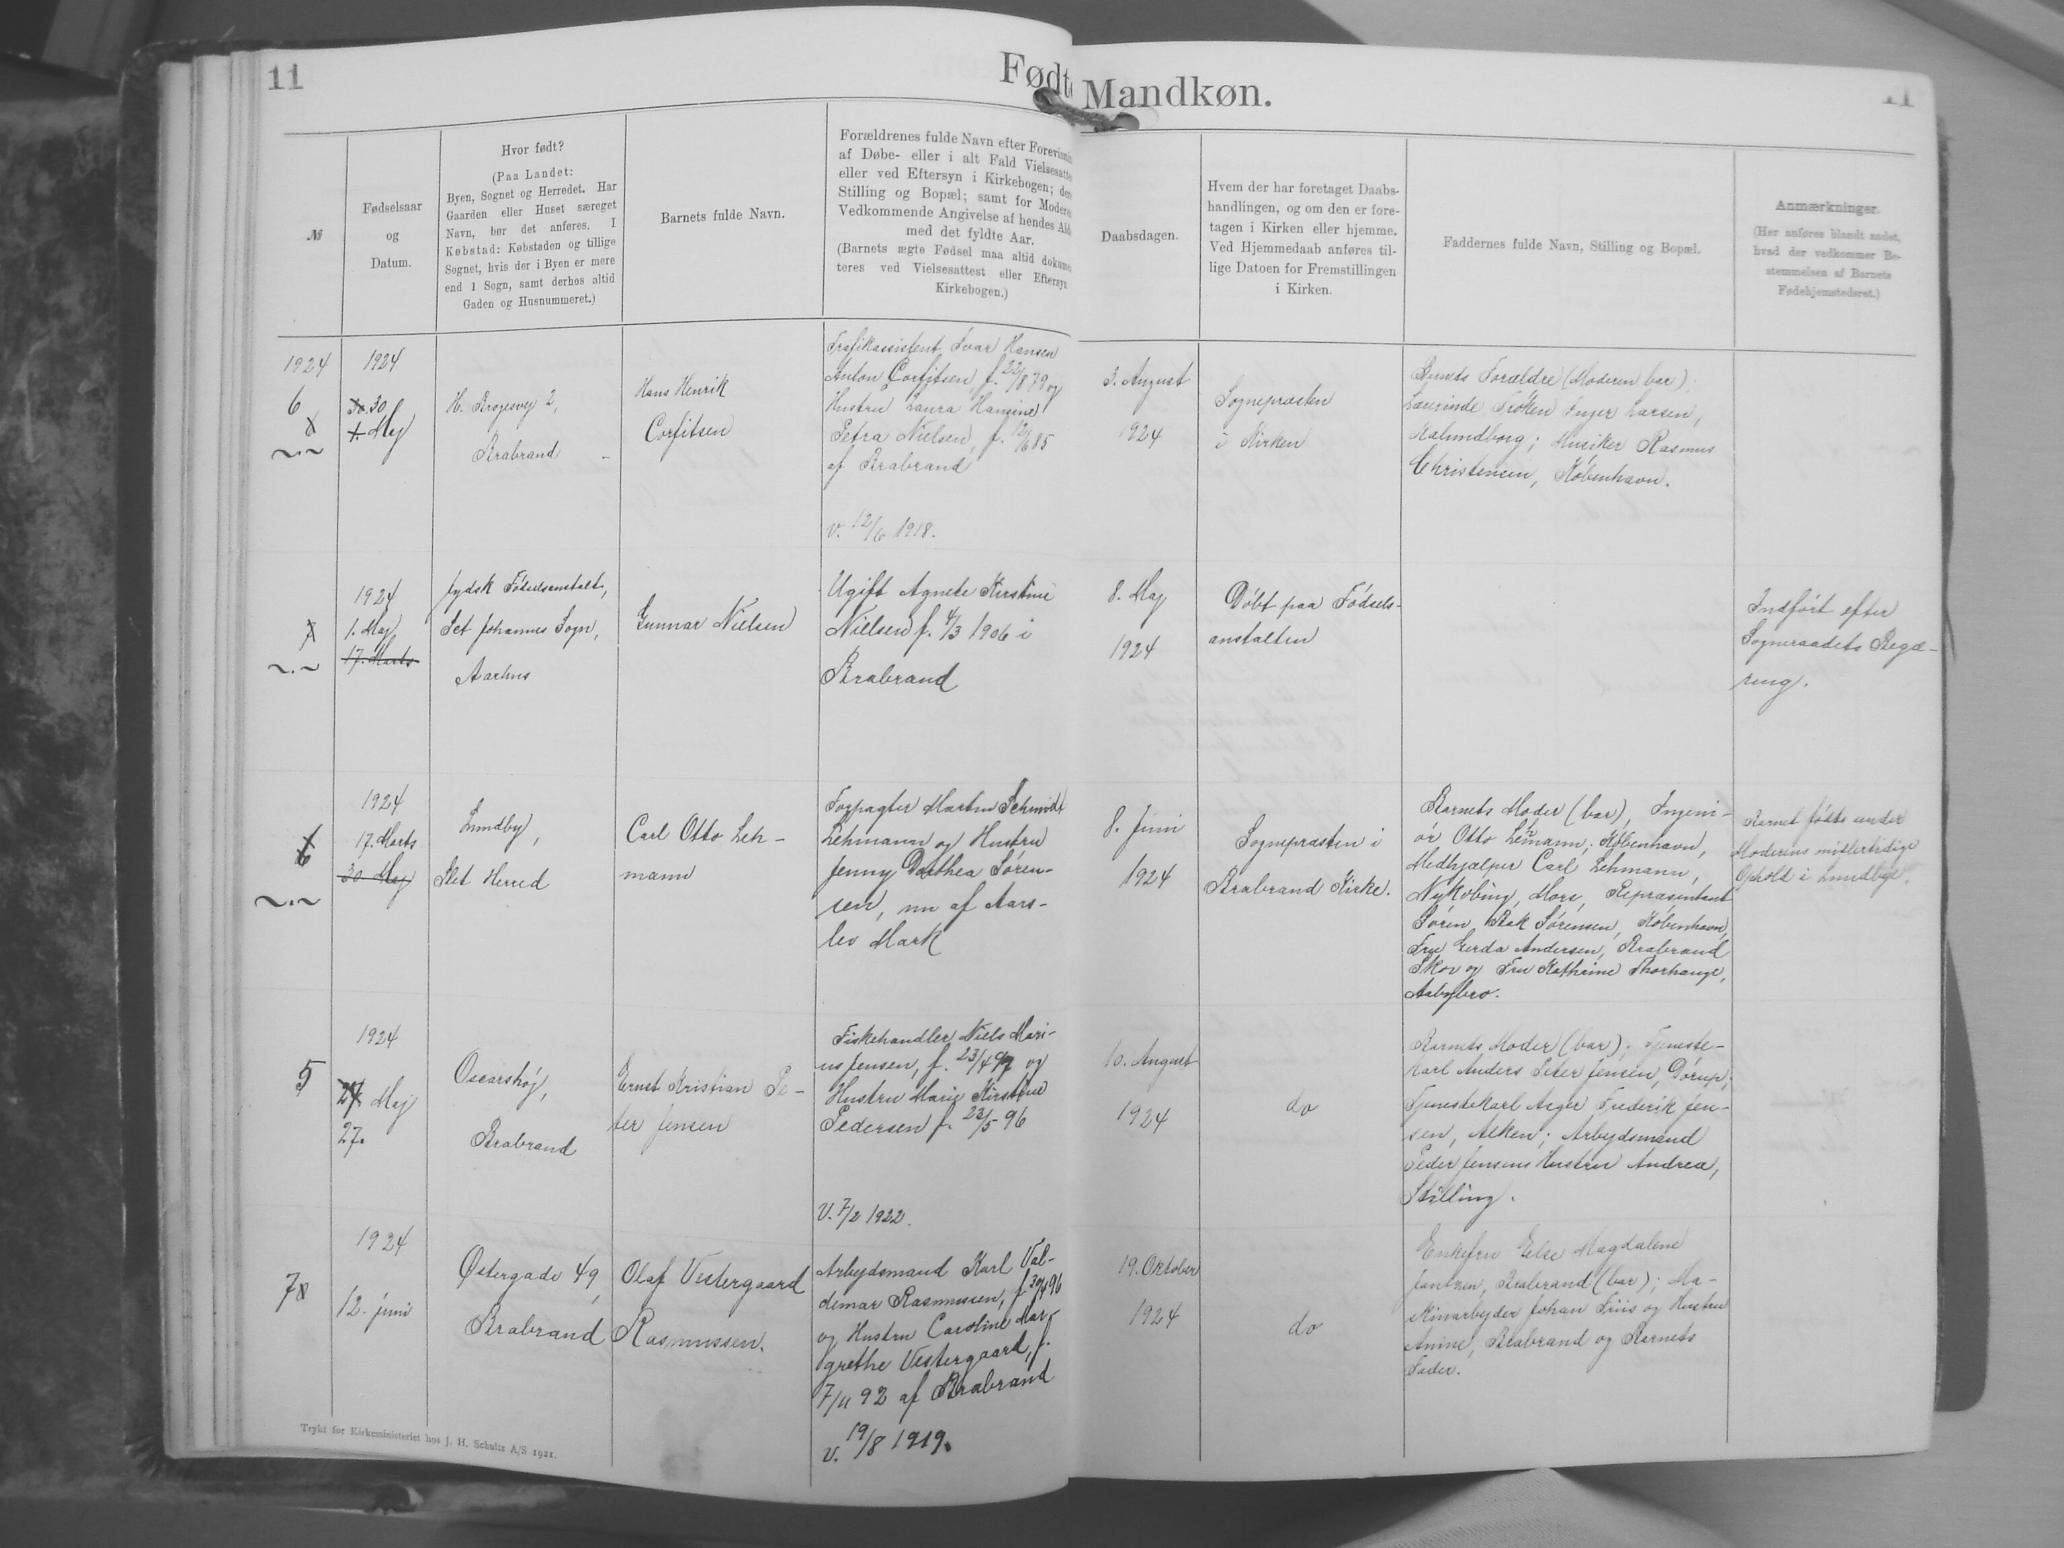 11
Født
Mandkøn.
11
№
Fødselsaar
og
Datum.
Hvor født?
(Paa Landet:
Byen, Sognet og Herredet. Har
Gaarden eller Huset særeget
Navn, bør det anføres. I
Købstad: Købstaden og tillige
Sognet, hvis der i Byen er mere
end 1 Sogn, samt derhos altid
Gaden og Husnummeret.)
Barnets fulde Navn.
Forældrenes fulde Navn efter Forevisni
af Døbe- eller i alt Fald Vielsesatte
eller ved Eftersyn i Kirkebogen; der
Stilling og Bopæl; samt for Modere
Vedkommende Angivelse af hendes Ald
med det fyldte Aar.
(Barnets ægte Fødsel maa altid dokume
teres ved Vielsesattest eller Eftersyn
Kirkebogen.)
Daabsdagen.
Hvem der har foretaget Daabs-
handlingen, og om den er fore-
tagen i Kirken eller hjemme.
Ved Hjemmedaab anføres til-
lige Datoen for Fremstillingen
i Kirken.
Faddernes fulde Navn, Stilling og Bopæl.
Anmærkninger.
(Her anføres blandt andet,
hvad der vedkommer Be-
stemmelsen af Barnets
Fødehjemstederet.)
1924
6
1924
30
Maj
H. Brogesvej 2,
Brabrand
Hans Henrik
Corfitsen
Trafikassistent Ivar Hansen
Anton Corfitsen, f. 22/8 79 og
Hustru Laura Hansine
Petra Nielsen, f. 12/6 85
af Brabrand
v. 12/6 1918.
3. August
1924
Sognepræsten
i Kirken
Barnets Forældre (Moderen bar);
Lærerinde Frøken Inger Larsen,
Kalundborg; Musiker Rasmus
Christensen, København.
1924
1. Maj
17. Marts
Jydsk Fødselsanstalt,
Sct Johannes Sogn,
Aarhus
Gunnar Nielsen
Ugift Agnete Kirstine
Nielsen f. 4/3 1906 i
Brabrand
8. Maj
1924
Døbt paa Fødsels-
anstalten
Indført efter
Sogneraadets Begæ-
ring.
1924
17. Marts
30 Maj
Lundby,
Slet Herred
Carl Otto Leh-
mann
Forpagter Martin Schmidt
Lehmann og Hustru
Jenny Dorthea Søren-
sen, nu af Aars-
lev Mark
8. Juni
1924
Sognepræsten i
Brabrand Kirke.
Barnets Moder (bar), Ingeni-
ør Otto Lehmann, København,
Medhjælper Carl Lehmann,
Nykøbing, Mors, Repræsentant
Søren Bak Sørensen, København,
Fru Gerda Andersen, Brabrand
Skov og Fru Kathrine Thorhauge,
Aabybro.
Barnet fødte under
Moderens midlertidige
Ophold i Lundby.
5
1924
Maj
27.
Oscarshøj,
Brabrand
Ernst Kristian Pe-
ter Jensen
Fiskehandler Niels Mari-
us Jensen, f. 23/4 97 og
Hustru Marie Kirstine
Pedersen f. 23/5 96
V. 7/2 1922.
10. August
1924
do
Barnets Moder (bar); Tjeneste-
karl Anders Peter Jensen, Dørup;
Tjenestekarl Aage Frederik Jen-
sen, Alken; Arbejdsmand
Peder Jensens Hustru Andrea,
Stilling.
7
1924
12. juni
Østergade 49,
Brabrand
Olaf Vestergaard
Rasmussen.
Arbejdsmand Karl Val-
demar Rasmussen, f. 30/4 96
og Hustru Caroline Mar-
grethe Vestergaard, f.
7/11 92 af Brabrand
v. 19/8 1919.
19. Oktober
1924
do
Enkefru Else Magdalene
Jantzen, Brabrand (bar); Ma-
skinarbejder Johan Friis og Hustru
Anine, Brabrand og Barnets
Fader.
Trykt for Kirkeministeriet hos J. H. Schultz A/S 1921.